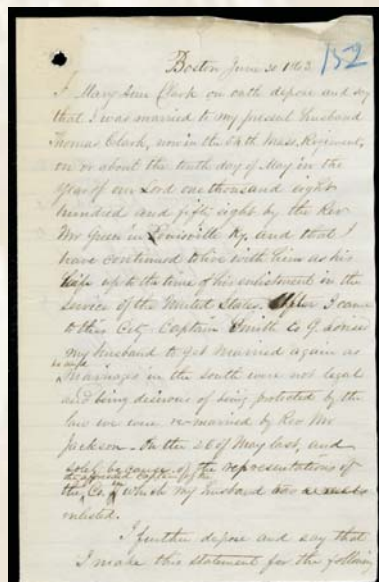 152
Boston June 30 1863
I Mary Ann Clark on oath depose and say
that I was married to my present husband
Thomas Clark, now in the 54th Mass. Regiment,
on or about the tenth day of May in the
year of our Lord one thousand eight
hundred and fifty eight by the Rev
Mr Green in Louisville Ky. And that I
have continued to live with him as his
wife up to the time of his enlistment in the
service of the United States. After I came
to this City Captain Smith Co G advised
my husband to get married again as
marriages in the south were not legal
and being desirous of being protected by the
law we were re-married by Rev Mr
Jackson. On the 26 of May last, and
solely because of the representations of
the aforesaid Captain of the
the Co. in which my husband was
enlisted.
I further depose and say that
I make this statement for the following